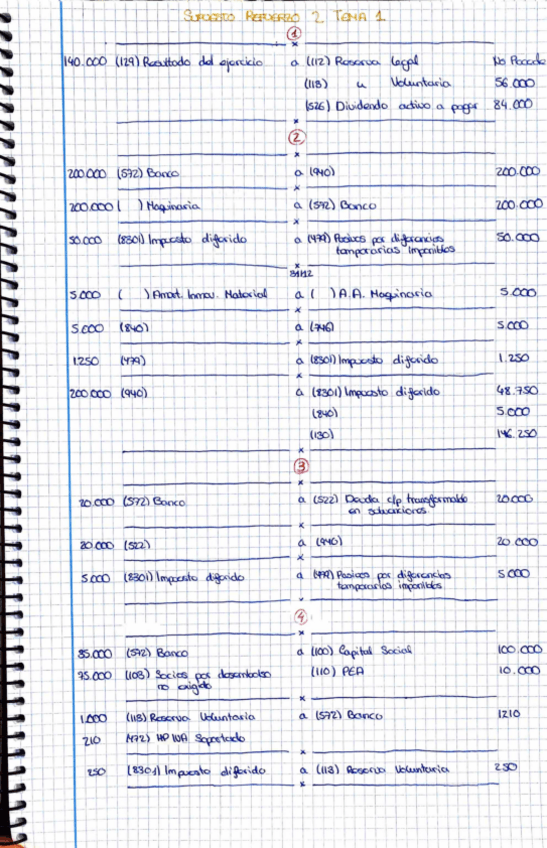 SUPUESTO REFUERZO 2 TEMA 1
1
x
140.000 (129) Resultado del ejercicio a (112) Reserva Legal No Procede
(113) u Voluntaria 56.000
(526) Dividendo activo a pagar 84.000
x
2
x
200.000 (572) Banco a (940) 200.000
x
200.000 ( ) Maquinaria a (572) Banco 200.000
x
50.000 (8301) Impuesto diferido a (479) Pasivos por diferencias 50.000
temporarias imponibles
x
31/12
5.000 ( ) Amort. Inmov. Material a ( ) A.A. Maquinaria 5.000
x
5.000 (840) a (746) 5.000
x
1250 (479) a (8301) Impuesto diferido 1.250
x
200.000 (940) a (8301) Impuesto diferido 48.750
(840) 5.000
(130) 146.250
x
3
x
20.000 (572) Banco a (522) Deuda c/p transformable 20.000
en subvenciones
x
20.000 (522) a (940) 20.000
x
5.000 (8301) Impuesto diferido a (479) Pasivos por diferencias 5.000
temporarias imponibles
x
4
x
35.000 (572) Banco a (100) Capital Social 100.000
75.000 (103) Socios por desembolso (110) PEA 10.000
no exigido
x
1.000 (113) Reserva Voluntaria a (572) Banco 1210
210 (472) HP IVA Soportado
x
250 (8301) Impuesto diferido a (113) Reserva Voluntaria 250
x